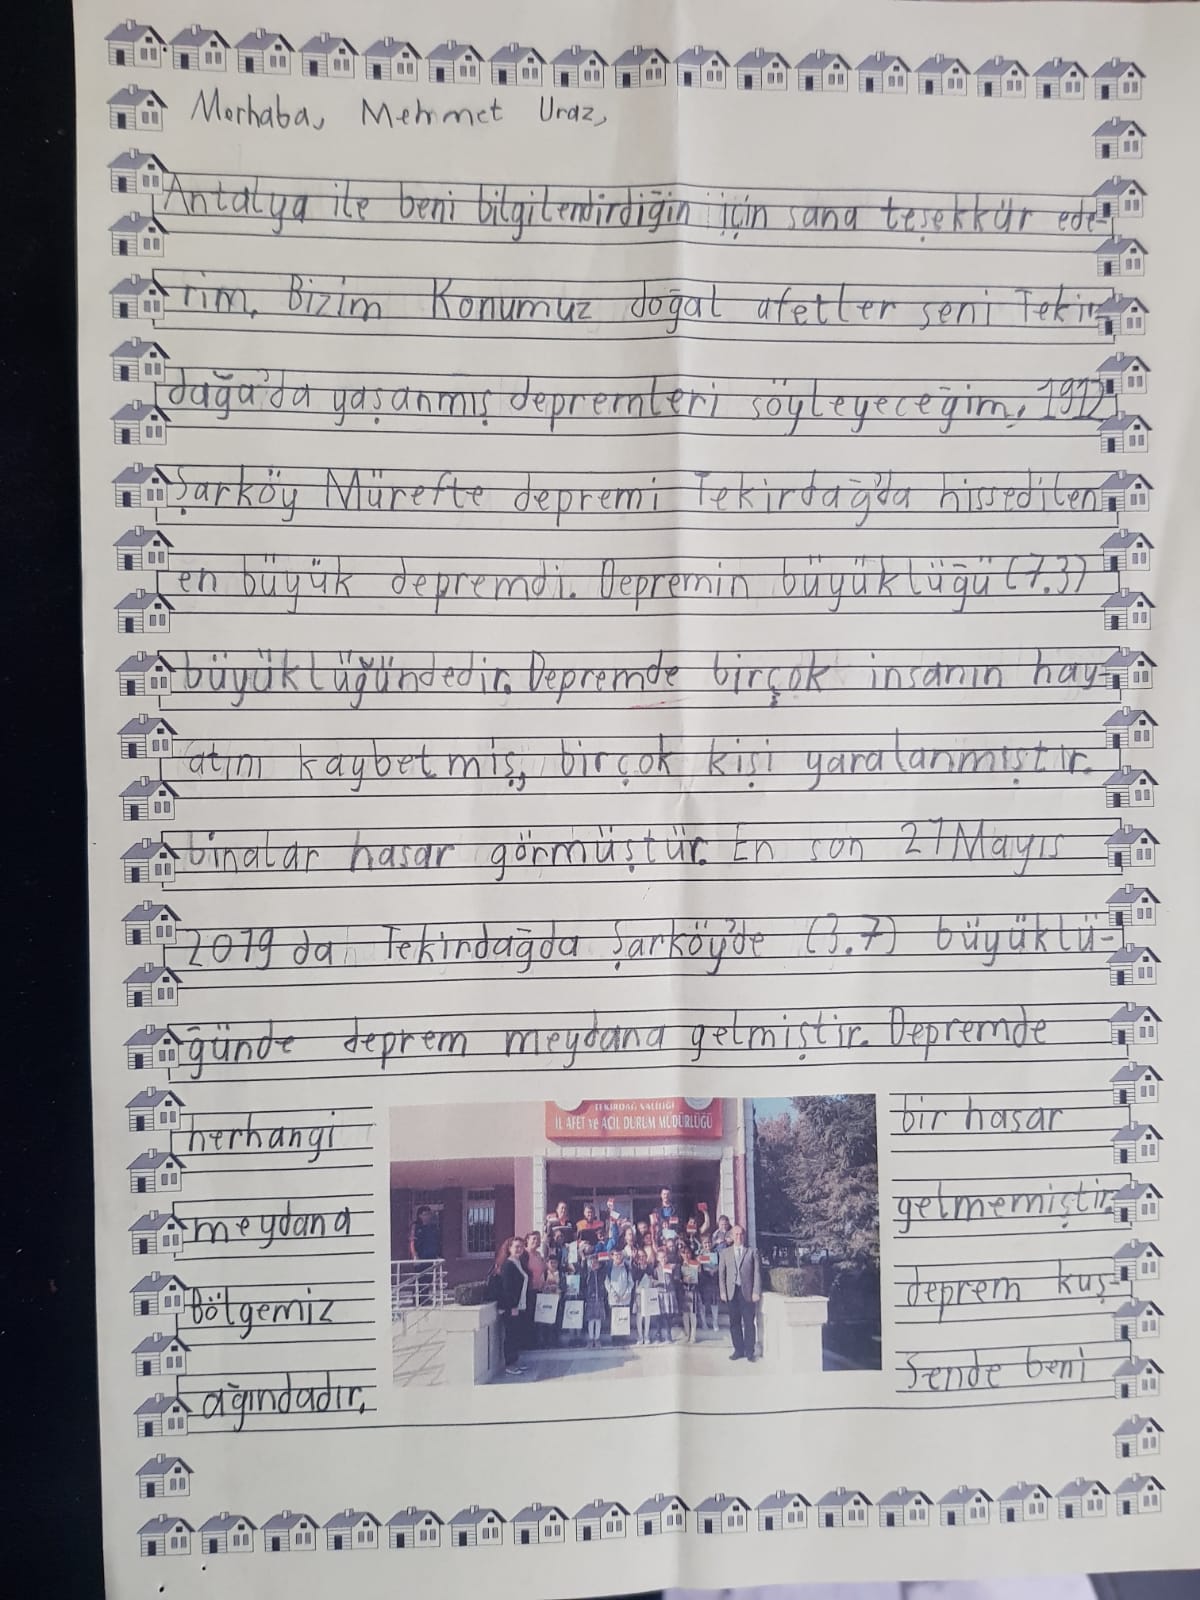 Merhaba, Mehmet Uraz,
Antalya ile beni bilgilendirdiğin için sana teşekkür ede-
rim. Bizim Konumuz doğal afetler seni Tekir-
dağa'da yaşanmış depremleri söyleyeceğim, 1912
Şarköy Mürefte depremi Tekirdağ'da hissedilen
en büyük depremdi. Depremin büyüklüğü (7.3)
büyüklüğündedir. Depremde birçok insanın hay-
atını kaybetmiş, birçok kişi yaralanmıştır.
binalar hasar görmüştür. En son 27 Mayıs
2019 da Tekirdağda Şarköy'de (3.7) büyüklü-
ğünde deprem meydana gelmiştir. Depremde
herhangi bir hasar
meydana getmemiştir.
Bölgemiz deprem kuş-
ağındadır. Sende beni
TEKİRDAĞ VALİLİĞİ
İL AFET ve ACİL DURUM MÜDÜRLÜĞÜ